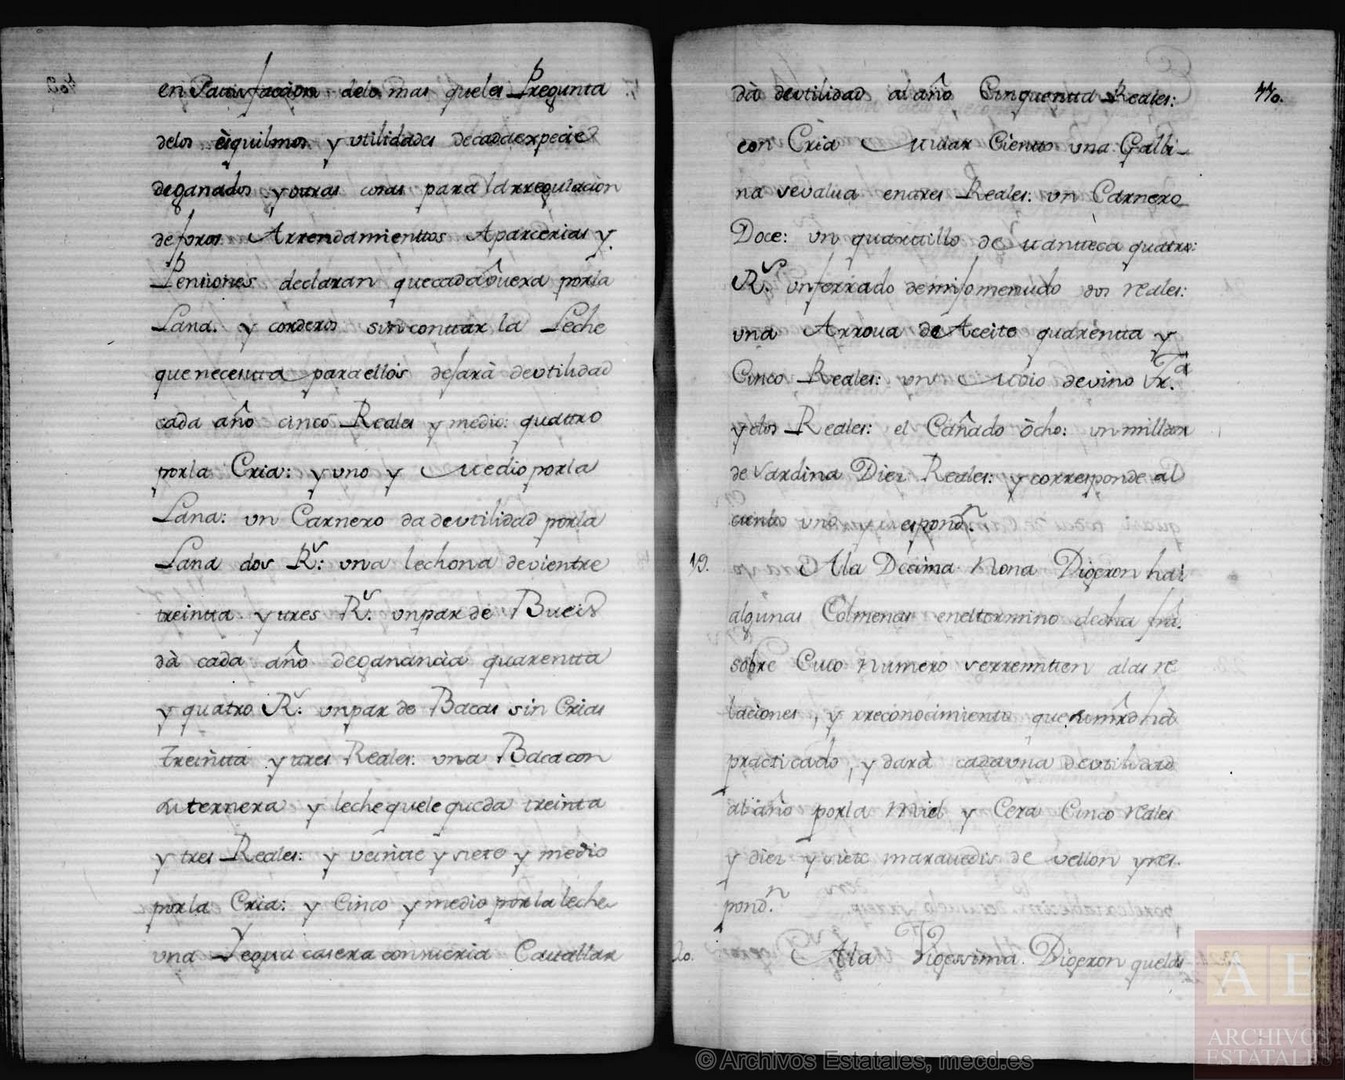 en Satisfaccion delo mas quele Pregunta
delos èsquilmos y vtilidades decadaexpecie
deganados y otras cosas para la rregulaciòn
de foros Arrendamienttos Aparcerias y
Penssiones declaran quecada ôuexa porla
Lana: y corderos sin conttar la Leche
que necesitta para ellos dejarà devtilidad
cada año cinco Reales y medio: quattro
porla Cria: y vno y Medio porla
Lana: vn Carnero da devtilidad porla
Lana dos R.s: vna lechona devientre
treintta y tres R.s: vn par de Bueis
dà cada año deganancia quarentta
y quatro R.s: vn par de Bacas sin Crias
treintta y tres Reales: vna Baca con
su ternera y leche quele queda treinta
y tres Reales: y veinte y siete y medio
porla Cria: y Cinco y medio por la leche
vna Yegua casera con su cria Cauallar
dà devtilidad al año Cinquentta Reales:
con Cria Mular Ciento: vna Galli-
na sevalua en tres Reales: vn Carnero
Doce: vn quartillo de Mantteca quatro
R.s vn ferrado de mijo menudo dos reales:
vna Arroua de Aceite quarentta y
Cinco Reales: vn Moio de vino tr.ta
y dos Reales: el Cañado ôcho: vn millar
de sardina Diez Reales: y corresponde al
ciento vno y respond.n
19. Ala Décima Nona Digeron hai
algunas Colmenas eneltermino dedha frâ.
sobre Cuio Numero serremiten alas re
laciones, y rreconocimiento que sumrd hà
practicado, y darà cada vna devtilidad
al año porla Miel y Cera Cinco reales
y diez y siete marauedis de vellon y res-
pond.n
20. Ala Vigessima Digeron quelas
770.
769